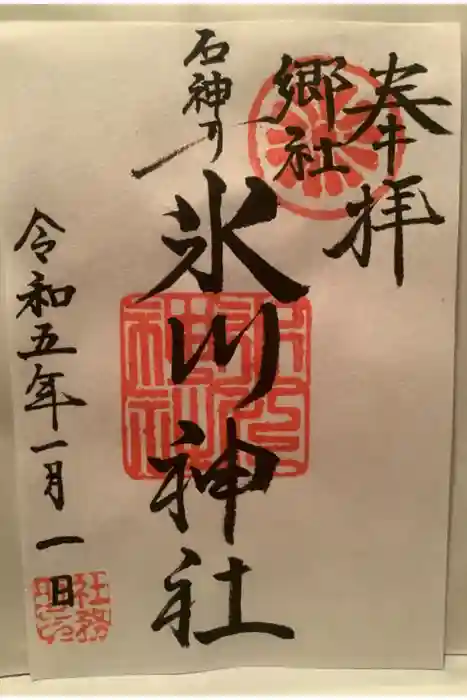 奉拝
郷社
石神井
氷川神社
令和五年一月一日
氷川神社
社務所之印